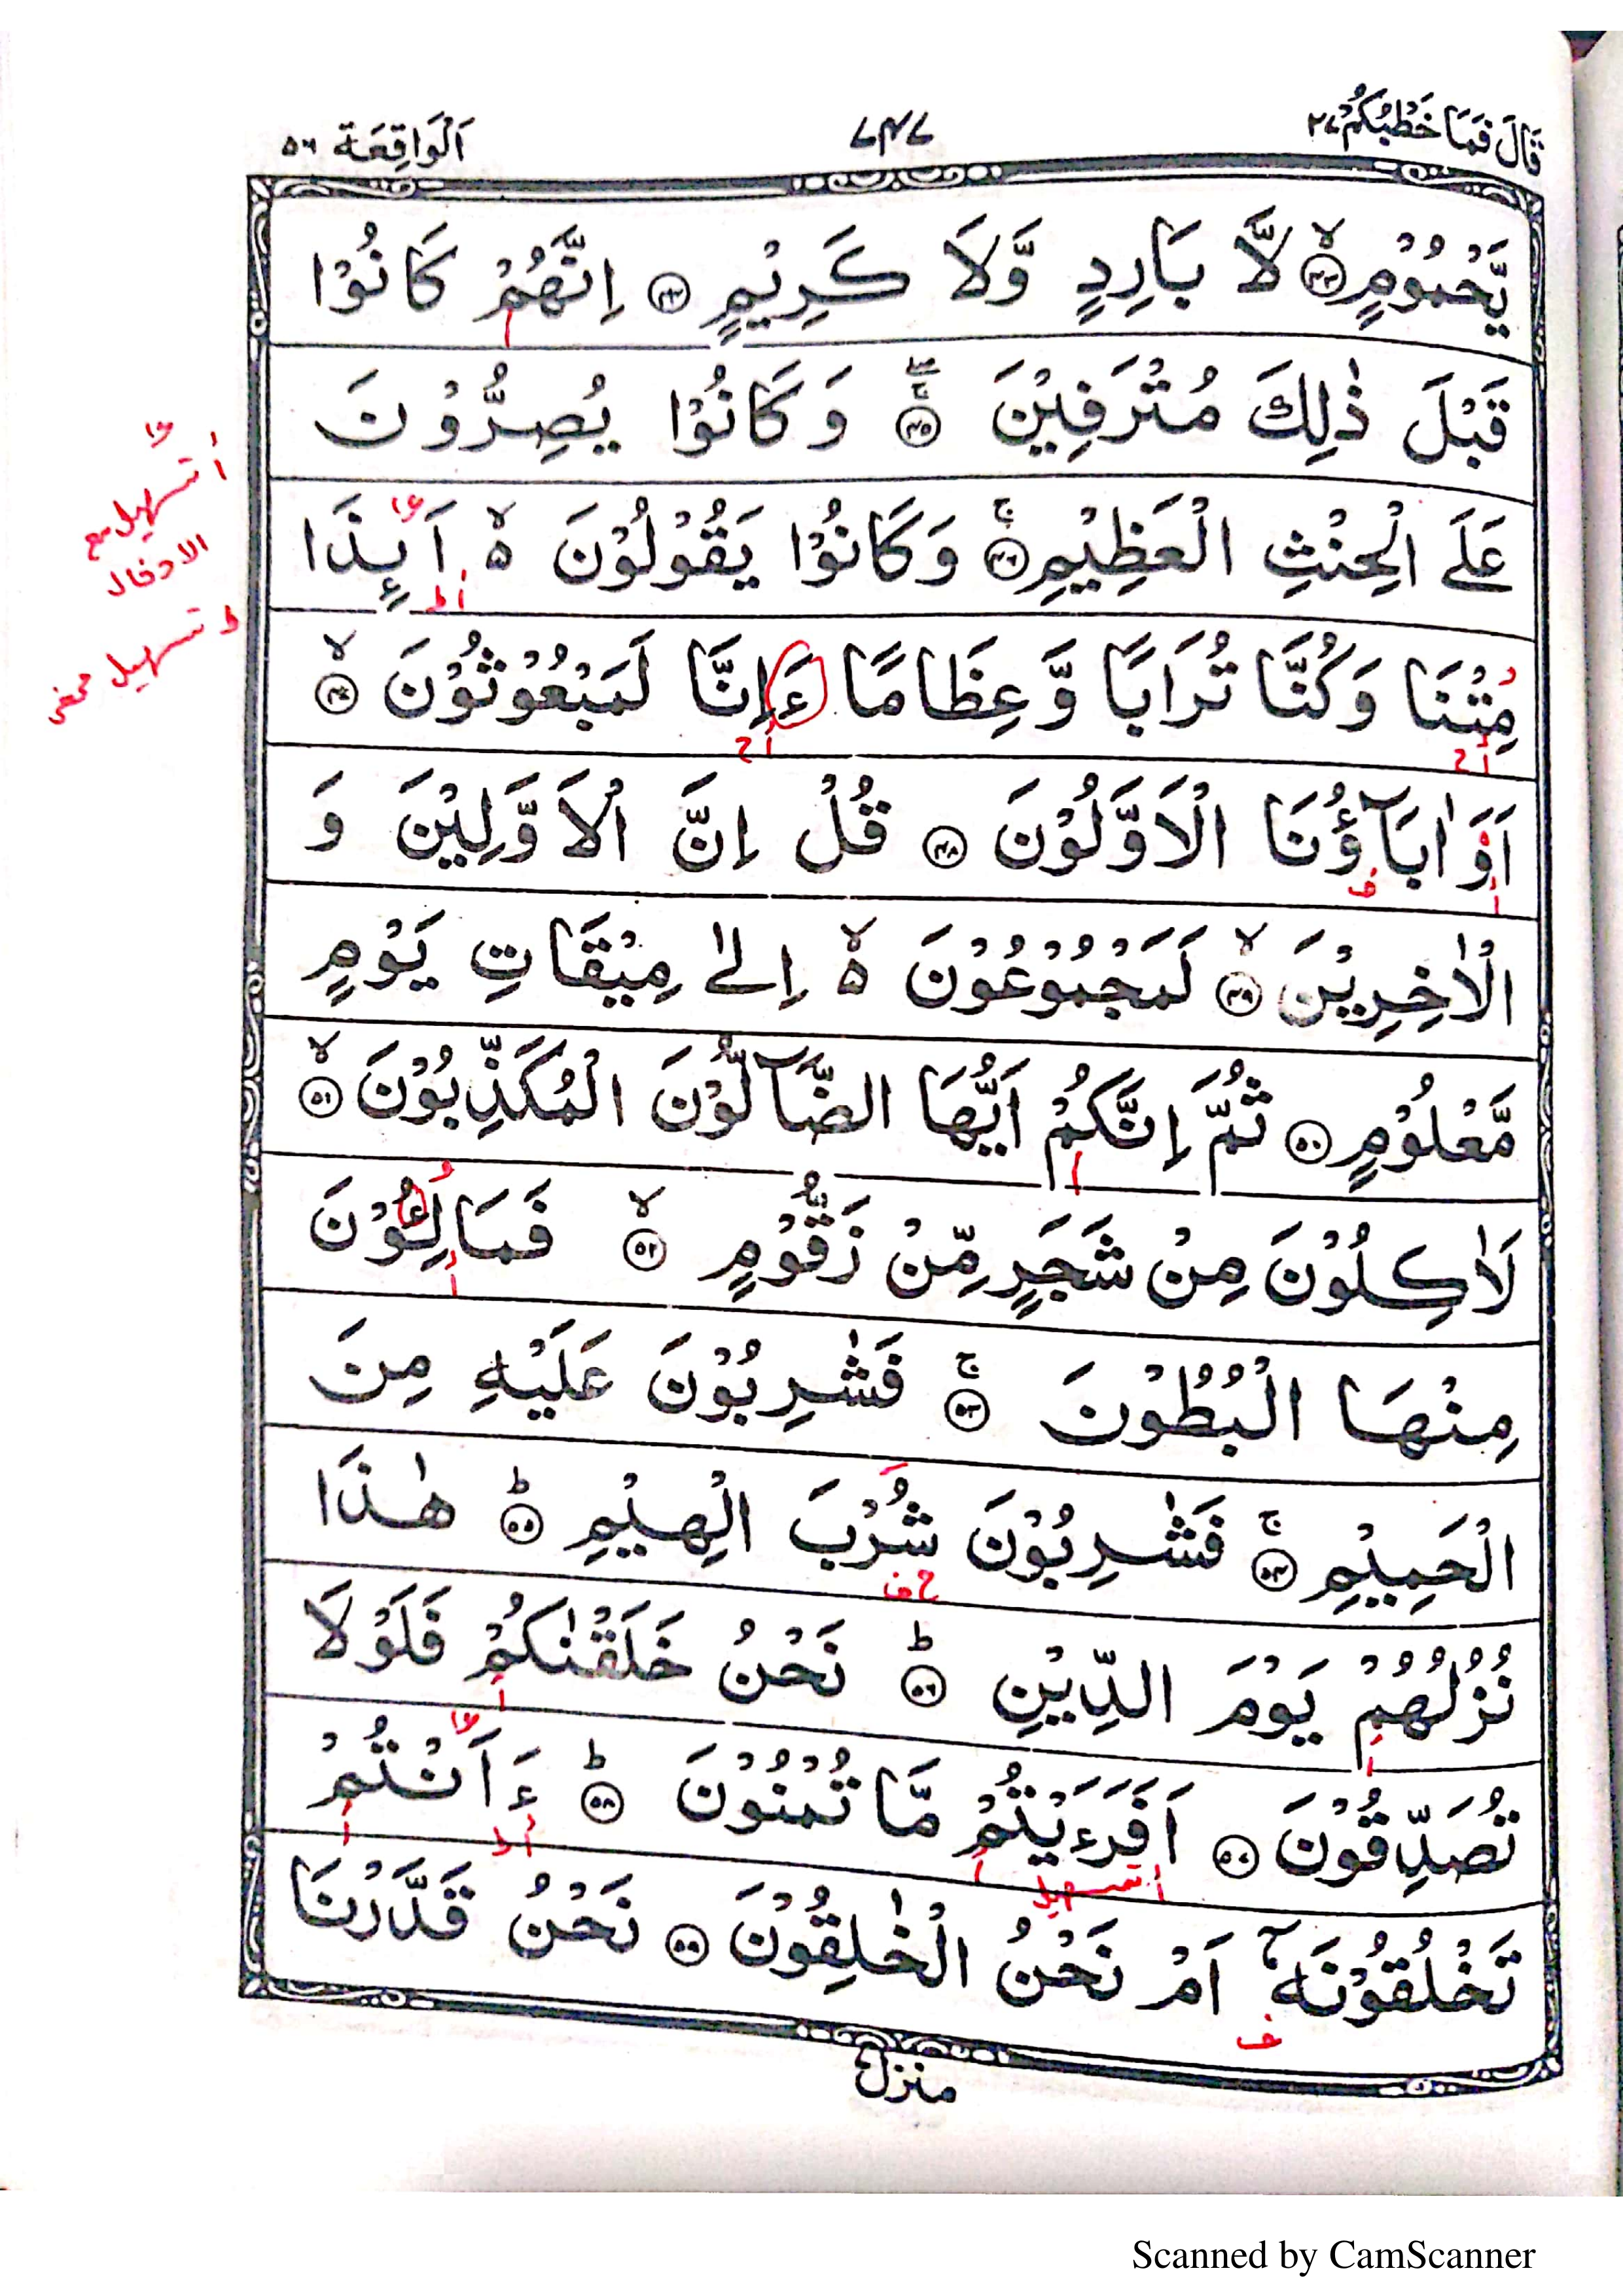 قَالَ فَمَا خَطْبُكُمْ ٢٧ ٧٤٧ اَلْوَاقِعَة ٥٦
يَّحْمُوْمٍ ۙ﴿٤٣﴾ لَّا بَارِدٍ وَّلَا كَرِيْمٍ ﴿٤٤﴾ اِنَّهُمْ كَانُوْا
قَبْلَ ذٰلِكَ مُتْرَفِيْنَ ۚ﴿٤٥﴾ وَكَانُوْا يُصِرُّوْنَ
عَلَى الْحِنْثِ الْعَظِيْمِ ۚ﴿٤٦﴾ وَكَانُوْا يَقُوْلُوْنَ ۙ۬ اَىِٕذَا
مِتْنَا وَكُنَّا تُرَابًا وَّعِظَامًا ءَاِنَّا لَمَبْعُوْثُوْنَ ۙ﴿٤٧﴾
اَوَاٰبَآؤُنَا الْاَوَّلُوْنَ ﴿٤٨﴾ قُلْ اِنَّ الْاَوَّلِيْنَ وَ
الْاٰخِرِيْنَ ۙ﴿٤٩﴾ لَمَجْمُوْعُوْنَ ۙ۬ اِلٰى مِيْقَاتِ يَوْمٍ
مَّعْلُوْمٍ ﴿٥٠﴾ ثُمَّ اِنَّكُمْ اَيُّهَا الضَّآلُّوْنَ الْمُكَذِّبُوْنَ ۙ﴿٥١﴾
لَاٰكِلُوْنَ مِنْ شَجَرٍ مِّنْ زَقُّوْمٍ ۙ﴿٥٢﴾ فَمَالِـُٔوْنَ
مِنْهَا الْبُطُوْنَ ۚ﴿٥٣﴾ فَشٰرِبُوْنَ عَلَيْهِ مِنَ
الْحَمِيْمِ ۚ﴿٥٤﴾ فَشٰرِبُوْنَ شُرْبَ الْهِيْمِ ؕ﴿٥٥﴾ هٰذَا
نُزُلُهُمْ يَوْمَ الدِّيْنِ ؕ﴿٥٦﴾ نَحْنُ خَلَقْنٰكُمْ فَلَوْلَا
تُصَدِّقُوْنَ ﴿٥٧﴾ اَفَرَءَيْتُمْ مَّا تُمْنُوْنَ ؕ﴿٥٨﴾ ءَاَنْتُمْ
تَخْلُقُوْنَهٗۤ اَمْ نَحْنُ الْخٰلِقُوْنَ ﴿٥٩﴾ نَحْنُ قَدَّرْنَا
منزل
أ تسهيل مع
الادخال
ط تسهيل محض
تسهيل
Scanned by CamScanner